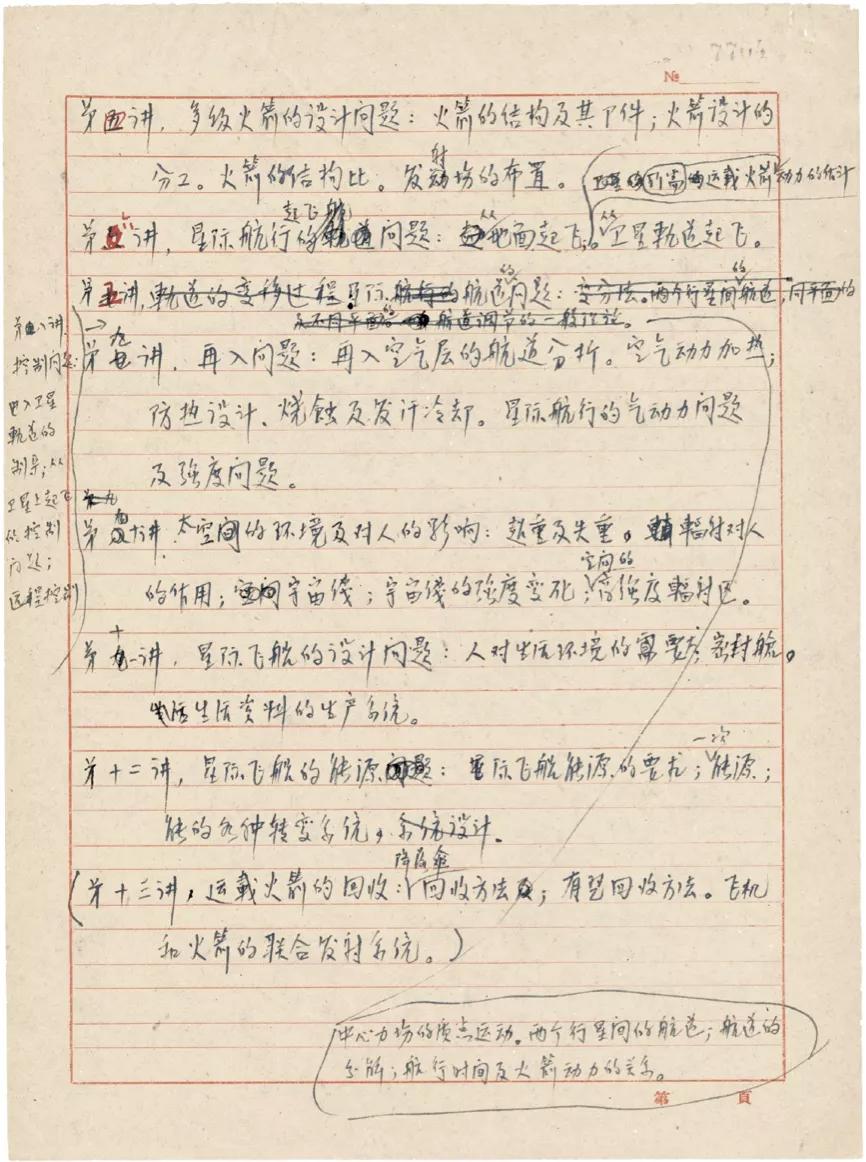 №
第四讲，多级火箭的设计问题：火箭的结构及其部件；火箭设计的
分工。火箭的结构比。发射场的布置。
运载火箭动力的估计
起飞
第六讲，星际航行的航道问题：从地面起飞。从卫星軌道起飞。
第五讲，軌道的变移过程。星际航行的航道的问题：变分法。两个行星间的航道，同平面的
及不同平面的 航道调节的一般理论。
第九讲，再入问题：再入空气层的航道分析。空气动力加热；
防热设计、烧蚀及发汗冷却。星际航行的气动力问题
及強度问题。
第八讲
控制问题：
进入卫星
軌道的
制导；从
卫星上起飞
的控制
问题；
远程控制
第九
第十讲 太空间的环境及对人的影响：超重及失重。輻射对人
的作用；宇宙线；宇宙线的強度变化；空间的高強度輻射区。
第十一讲，星际飞船的设计问题：人对生活环境的需要；密封舱。
生活资料的生产系统。
第十二讲，星际飞船的能源问题：星际飞船能源的要求；一次能源；
能的各种转变系统，系统设计。
（第十三讲，运载火箭的回收：降落伞回收方法；有翼回收方法。飞机
和火箭的联合发射系统。）
中心力场的质点运动。两个行星间的航道；航道的
分解；航行时间及火箭动力的关系。
第 頁